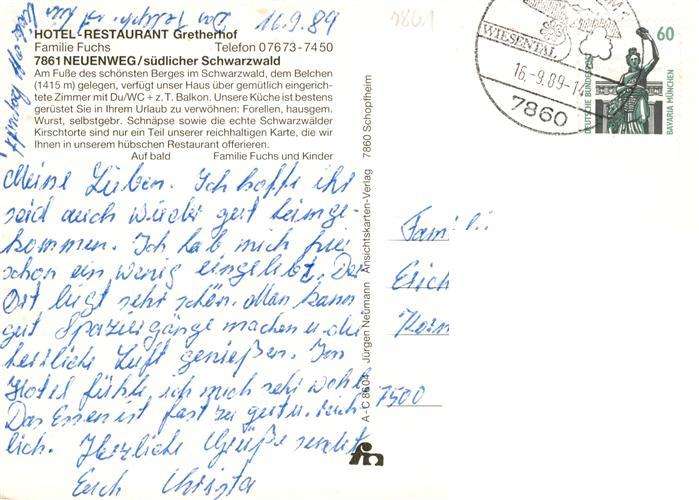 16.9.89
HOTEL-RESTAURANT Gretherhof
Familie Fuchs Telefon 07673-7450
7861 NEUENWEG/südlicher Schwarzwald
Am Fuße des schönsten Berges im Schwarzwald, dem Belchen
(1415 m) gelegen, verfügt unser Haus über gemütlich eingerich-
tete Zimmer mit Du/WC + z.T. Balkon. Unsere Küche ist bestens
gerüstet Sie in Ihrem Urlaub zu verwöhnen: Forellen, hausgem.
Wurst, selbstgebr. Schnäpse sowie die echte Schwarzwälder
Kirschtorte sind nur ein Teil unserer reichhaltigen Karte, die wir
Ihnen in unserem hübschen Restaurant offerieren.
Auf bald Familie Fuchs und Kinder
Meine Lieben. Ich hoffe ihr
seid auch wieder gut heimge-
kommen. Ich hab mich hier
schon ein wenig eingelebt. Der
Ort liegt sehr schön. Man kann
gut Spaziergänge machen u. die
herrliche Luft genießen. Im
Hotel fühle ich mich sehr wohl
Das Essen ist fast zu gut u. reich
lich. Herzliche Grüße sendet
Euch Christa
A-C 8604 Jürgen Neumann Ansichtskarten-Verlag 7860 Schopfheim
WIESENTAL
16.-9.89-1
7860
60
DEUTSCHE BUNDESPOST
BAVARIA MÜNCHEN
Famili
Erich
Korn
7500